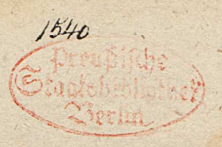 1540
Preußische
Staatsbibliothek
Berlin